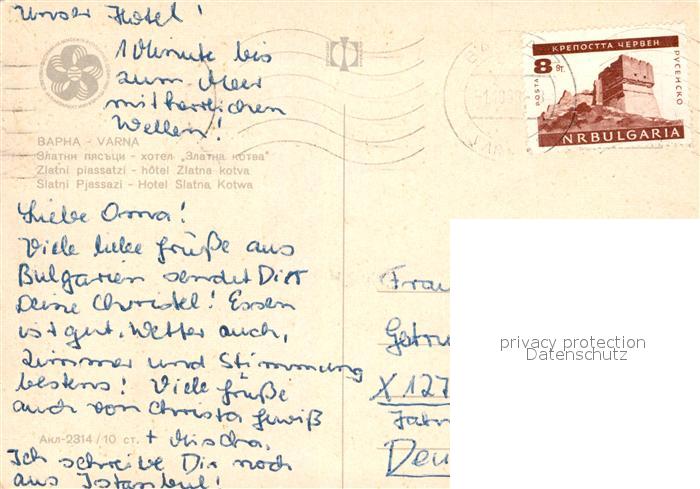 Unser Hotel!
1 Minute bis
zum Meer
mit herrlichen
Wellen!
ВАРНА - VARNA
Златни пясъци - хотел „Златна котва"
Zlatni piassatzi - hôtel Zlatna kotva
Slatni Pjassazi - Hotel Slatna Kotwa
Liebe Oma!
Viele liebe Grüße aus
Bulgarien sendet Dir
Deine Christel! Essen
ist gut, Wetter auch,
Zimmer und Stimmung
bestens! Viele Grüße
auch von Christa
+ Mischa.
Ich schreibe Dir noch
aus Istanbul!
Акл-2314/10 ст.
КРЕПОСТТА ЧЕРВЕН
8 ст.
POSTA
РУСЕНСКО
NRBULGARIA
Frau
X 127
Deu
privacy protection
Datenschutz